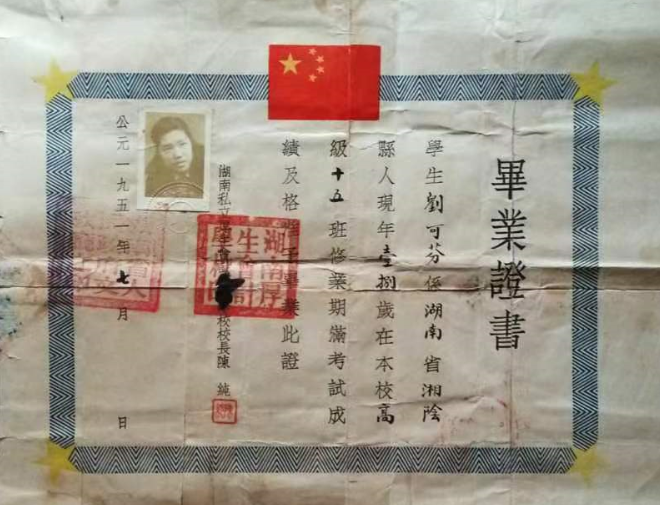 畢業證書
學生劉可芬係湖南省湘陰
縣人現年壹捌歲在本校高
級十五班修業期滿考試成
績及格 畢業此證
湖南私立 校校長陳 純
公元一九五一年七月 日
湖南厚
生會計